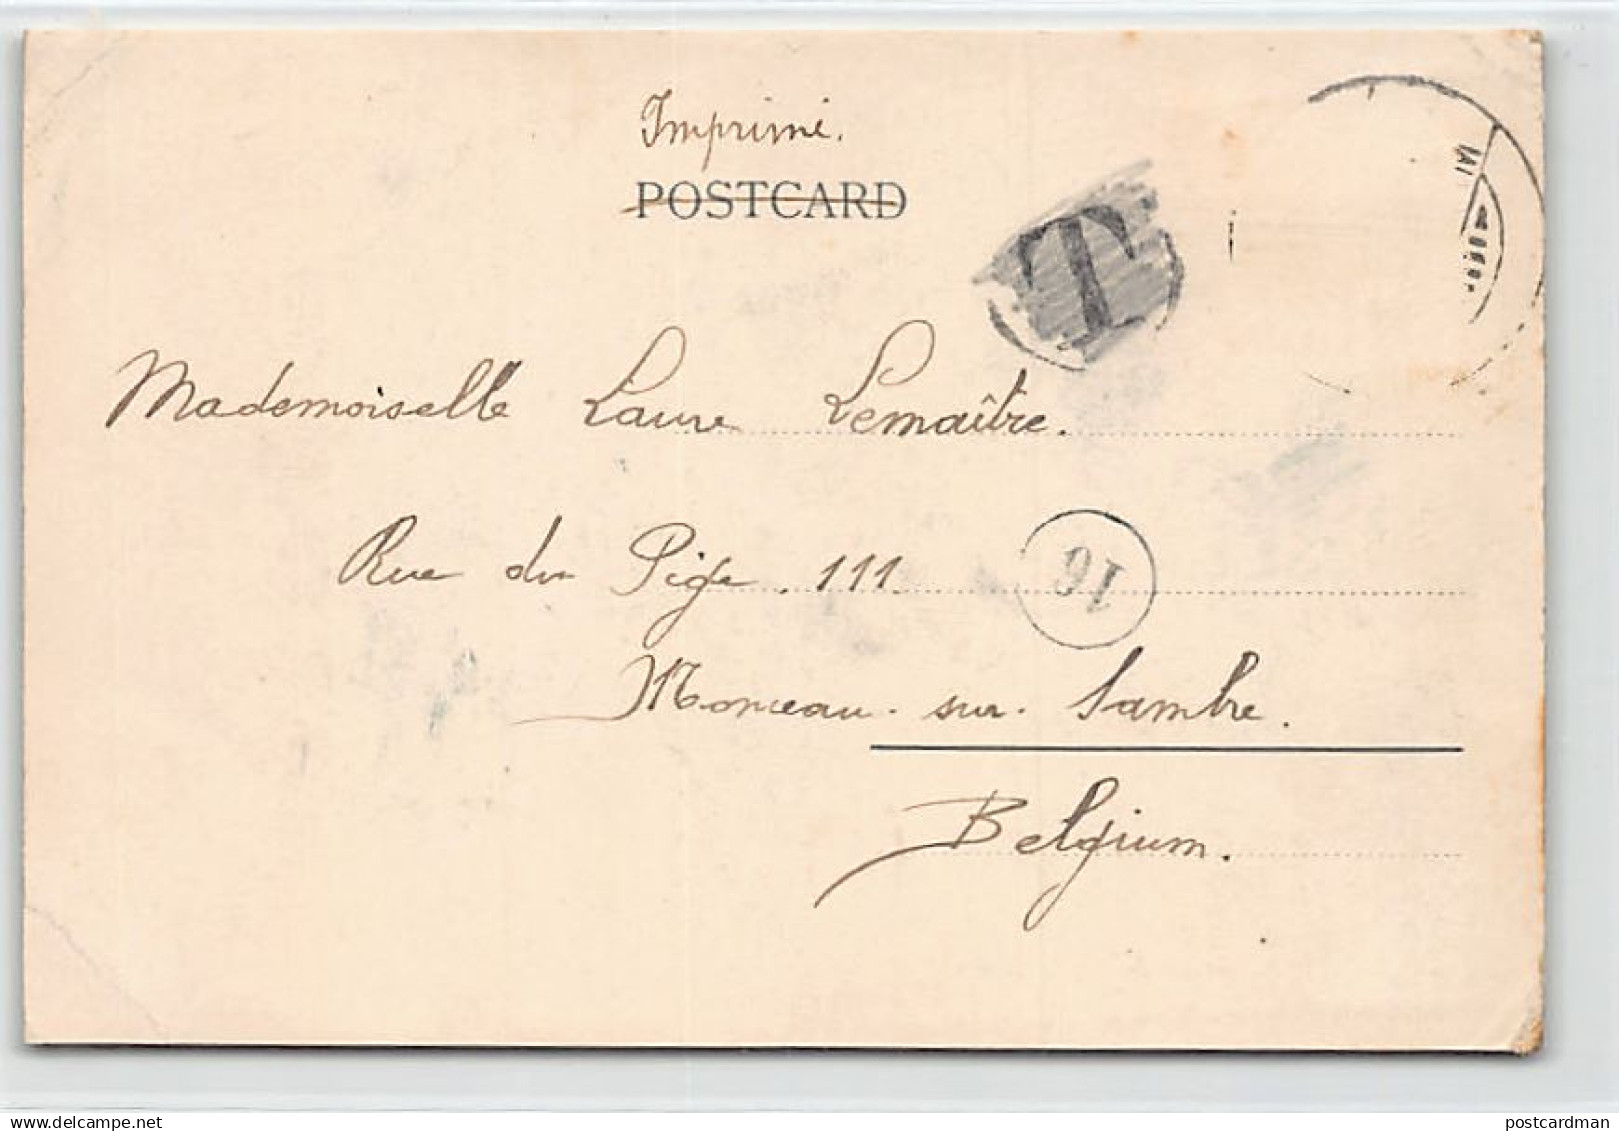 Imprimé.
POSTCARD
T
Mademoiselle Laure Lemaître.
Rue du Pige. 111.
16
Monceau-sur-Sambre.
Belgium.
www.delcampe.net
postcardman